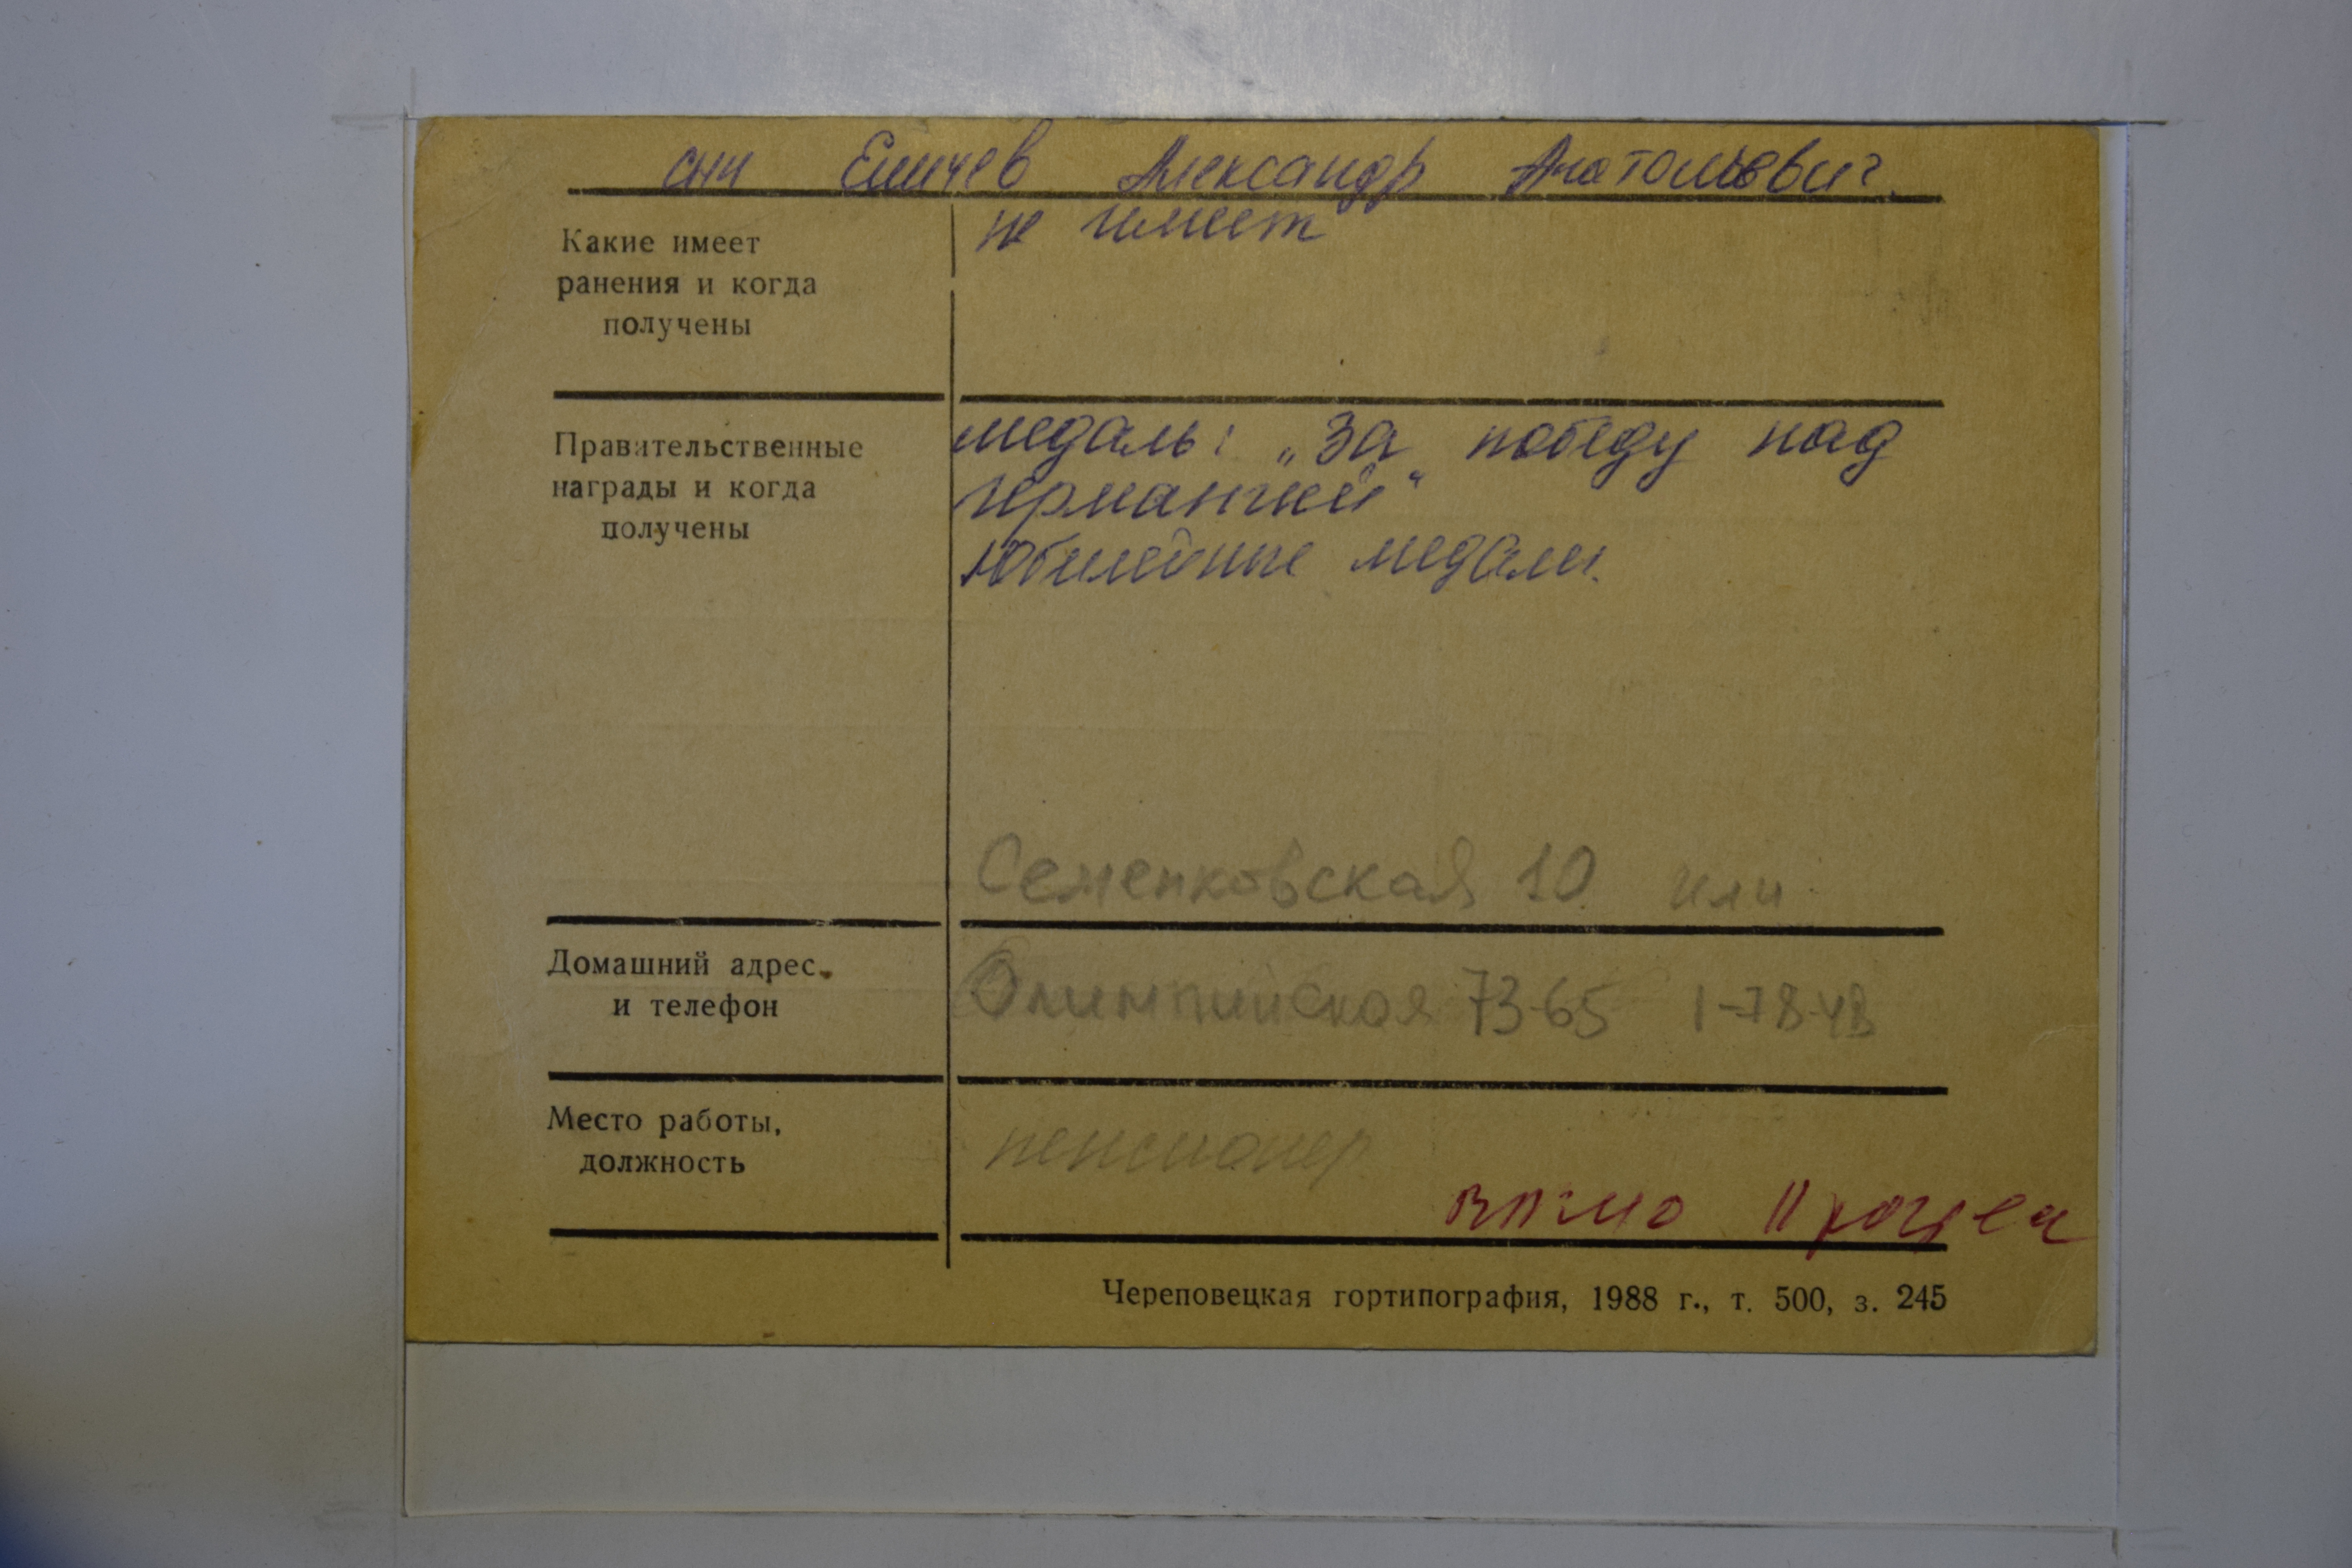 сын Еличев Александр Анатольевич.
Какие имеет
ранения и когда
получены
не имеет
Правительственные
награды и когда
получены
медаль: „За победу над
Германией“
Юбилейные медали.
Семенковская 10 или
Домашний адрес
и телефон
Олимпийская 73-65 1-78-48
Место работы,
должность
пенсионер
Череповецкая гортипография, 1988 г., т. 500, з. 245